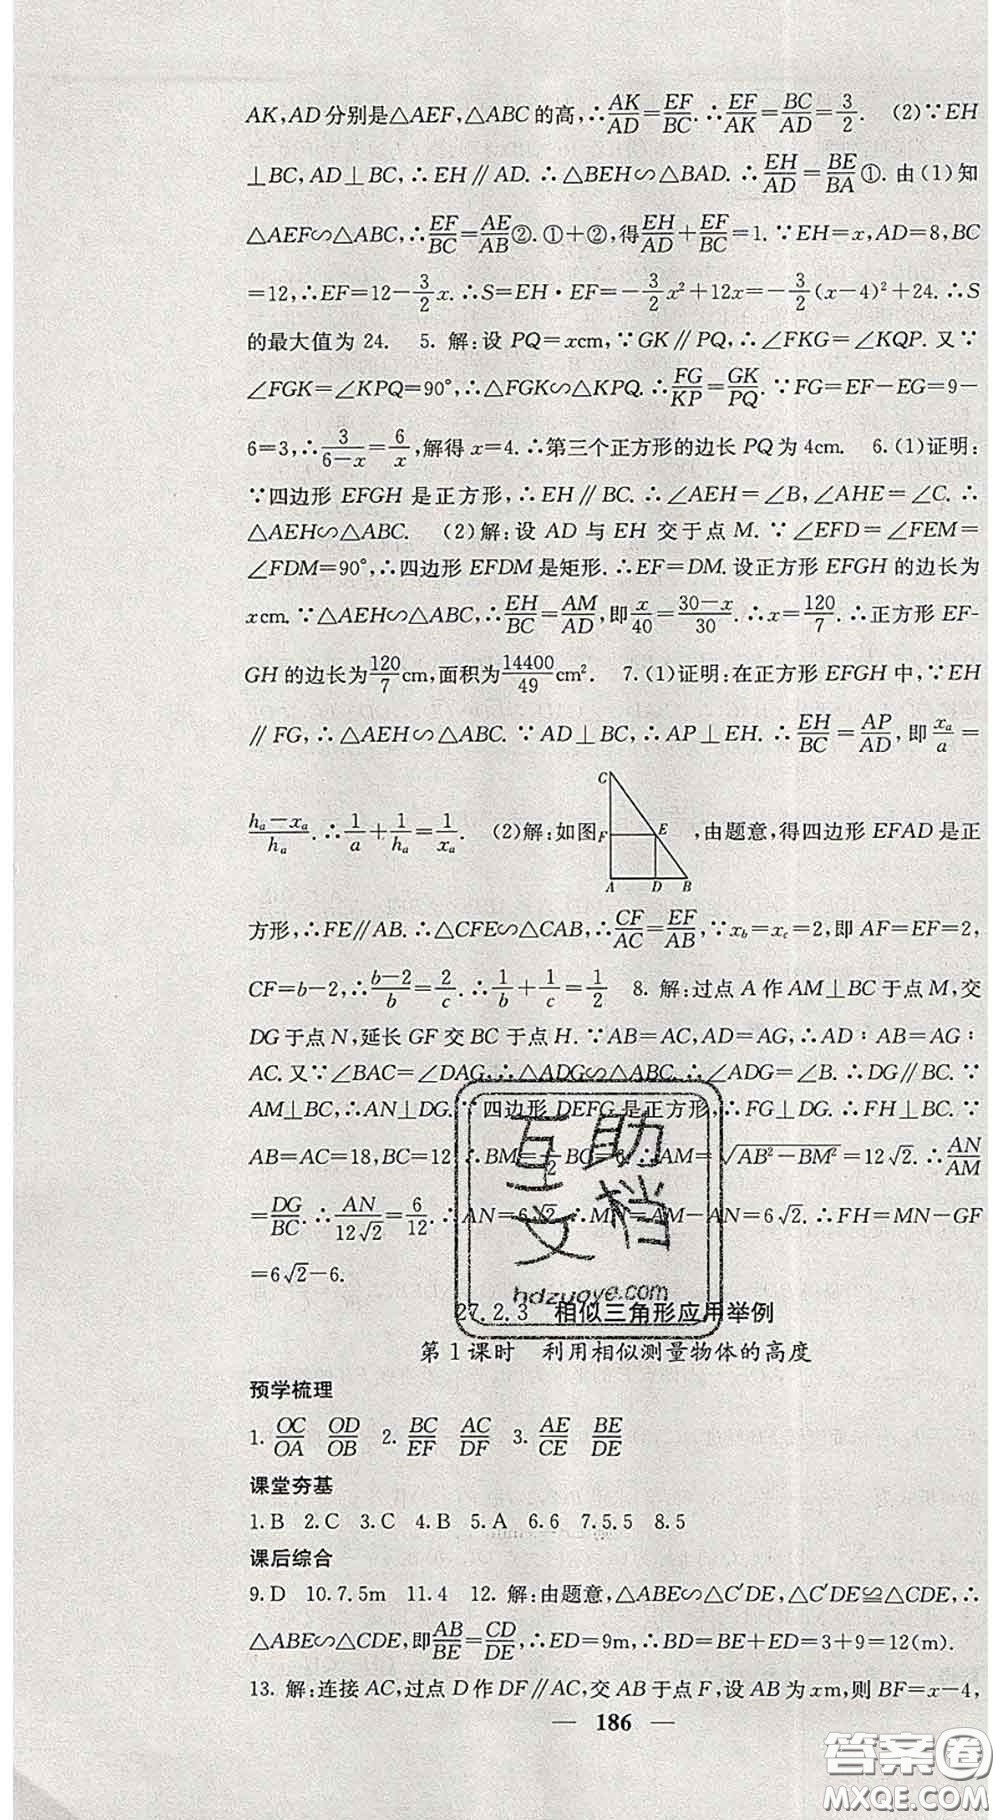 AK,AD分别是△AEF,△ABC的高,∴AK/AD=EF/BC.∴EF/AK=BC/AD=3/2. (2)∵EH
⊥BC,AD⊥BC,∴EH∥AD.∴△BEH∽△BAD.∴EH/AD=BE/BA①.由(1)知
△AEF∽△ABC,∴EF/BC=AE/AB②.①+②,得EH/AD+EF/BC=1.∵EH=x,AD=8,BC
=12,∴EF=12-3/2x.∴S=EH·EF=-3/2x²+12x=-3/2(x-4)²+24.∴S
的最大值为24. 5.解:设PQ=xcm,∵GK∥PQ,∴∠FKG=∠KQP.又∵
∠FGK=∠KPQ=90°,∴△FGK∽△KPQ.∴FG/KP=GK/PQ.∵FG=EF-EG=9-
6=3,∴3/(6-x)=6/x,解得x=4.∴第三个正方形的边长PQ为4cm. 6.(1)证明:
∵四边形EFGH是正方形,∴EH∥BC.∴∠AEH=∠B,∠AHE=∠C.∴
△AEH∽△ABC. (2)解:设AD与EH交于点M.∵∠EFD=∠FEM=
∠FDM=90°,∴四边形EFDM是矩形.∴EF=DM.设正方形EFGH的边长为
xcm.∵△AEH∽△ABC,∴EH/BC=AM/AD,即x/40=(30-x)/30.∴x=120/7.∴正方形EF-
GH的边长为120/7cm,面积为14400/49cm². 7.(1)证明:在正方形EFGH中,∵EH
∥FG,∴△AEH∽△ABC.∵AD⊥BC,∴AP⊥EH.∴EH/BC=AP/AD,即xₐ/a=
(hₐ-xₐ)/hₐ.∴1/a+1/hₐ=1/xₐ. (2)解:如图 C F E A D B ,由题意,得四边形EFAD是正
方形,∴FE∥AB.∴△CFE∽△CAB,∴CF/AC=EF/AB,∵x_b=x_c=2,即AF=EF=2,
CF=b-2,∴(b-2)/b=2/c.∴1/b+1/c=1/2 8.解:过点A作AM⊥BC于点M,交
DG于点N,延长GF交BC于点H.∵AB=AC,AD=AG,∴AD∶AB=AG∶
AC.又∵∠BAC=∠DAG,∴△ADG∽△ABC.∴∠ADG=∠B.∴DG∥BC.∵
AM⊥BC,∴AN⊥DG.∵四边形DEFG是正方形,∴FG⊥DG.∴FH⊥BC.∵
AB=AC=18,BC=12,∴BM=1/2BC=6.∴AM=√(AB²-BM²)=12√2.∴AN/AM
=DG/BC.∴AN/12√2=6/12.∴AN=6√2.∴MN=AM-AN=6√2.∴FH=MN-GF
=6√2-6.
互助
文档
hdzuoye.com
27.2.3 相似三角形应用举例
第1课时 利用相似测量物体的高度
预学梳理
1.OC/OA OD/OB 2.BC/EF AC/DF 3.AE/CE BE/DE
课堂夯基
1.B 2.C 3.C 4.B 5.A 6.6 7.5.5 8.5
课后综合
9.D 10.7.5m 11.4 12.解:由题意,△ABE∽△C′DE,△C′DE≌△CDE,∴
△ABE∽△CDE,即AB/BE=CD/DE,∴ED=9m,∴BD=BE+ED=3+9=12(m).
13.解:连接AC,过点D作DF∥AC,交AB于点F,设AB为xm,则BF=x-4,
— 186 —
答案圈
MXQE.COM